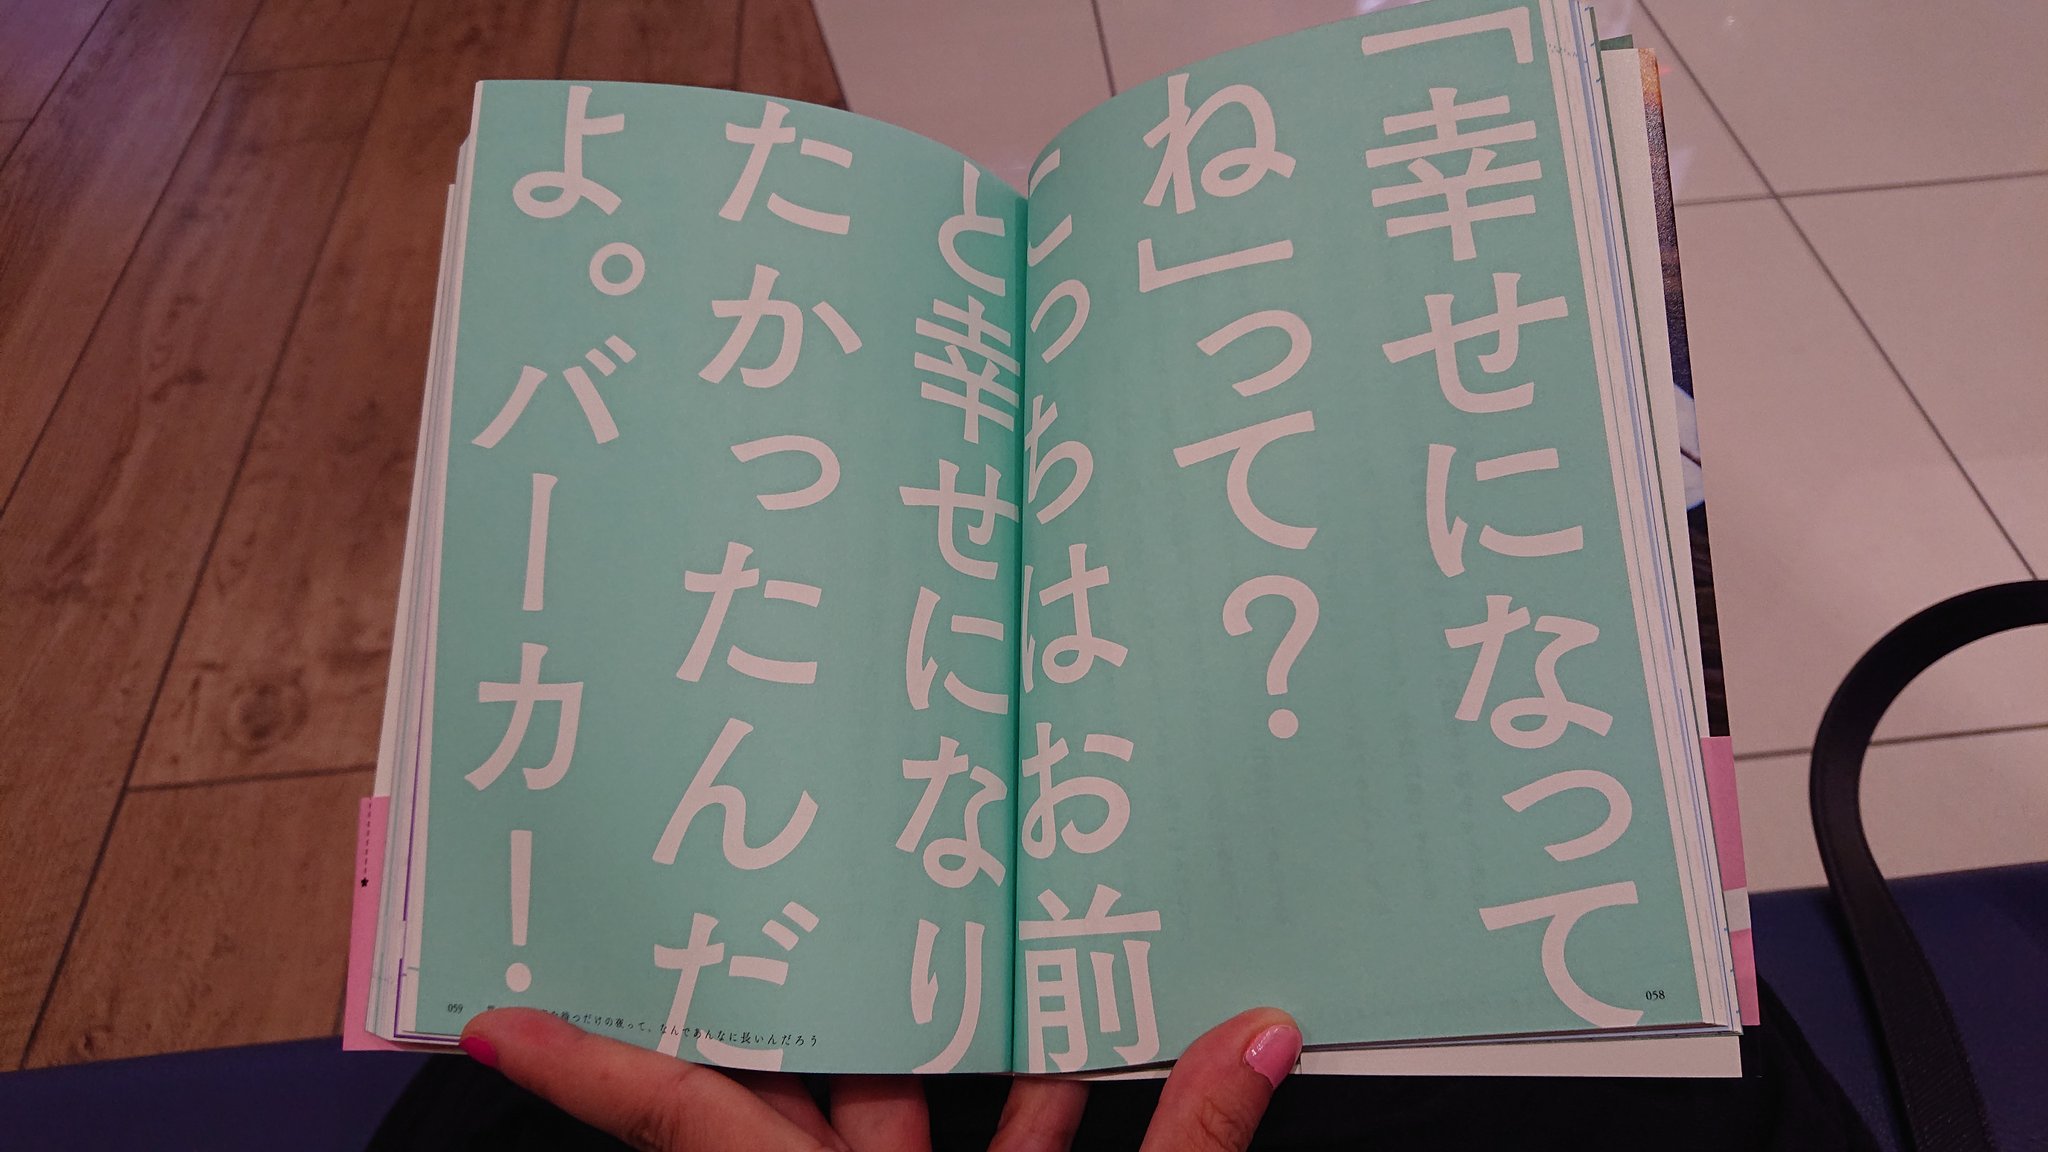 「幸せになって
ね」って？
こっちはお前
と幸せになり
たかったんだ
よ。バーカー！
058
059
待つだけの夜って、なんであんなに長いんだろう